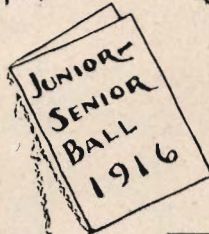 JUNIOR-
SENIOR
BALL
1916